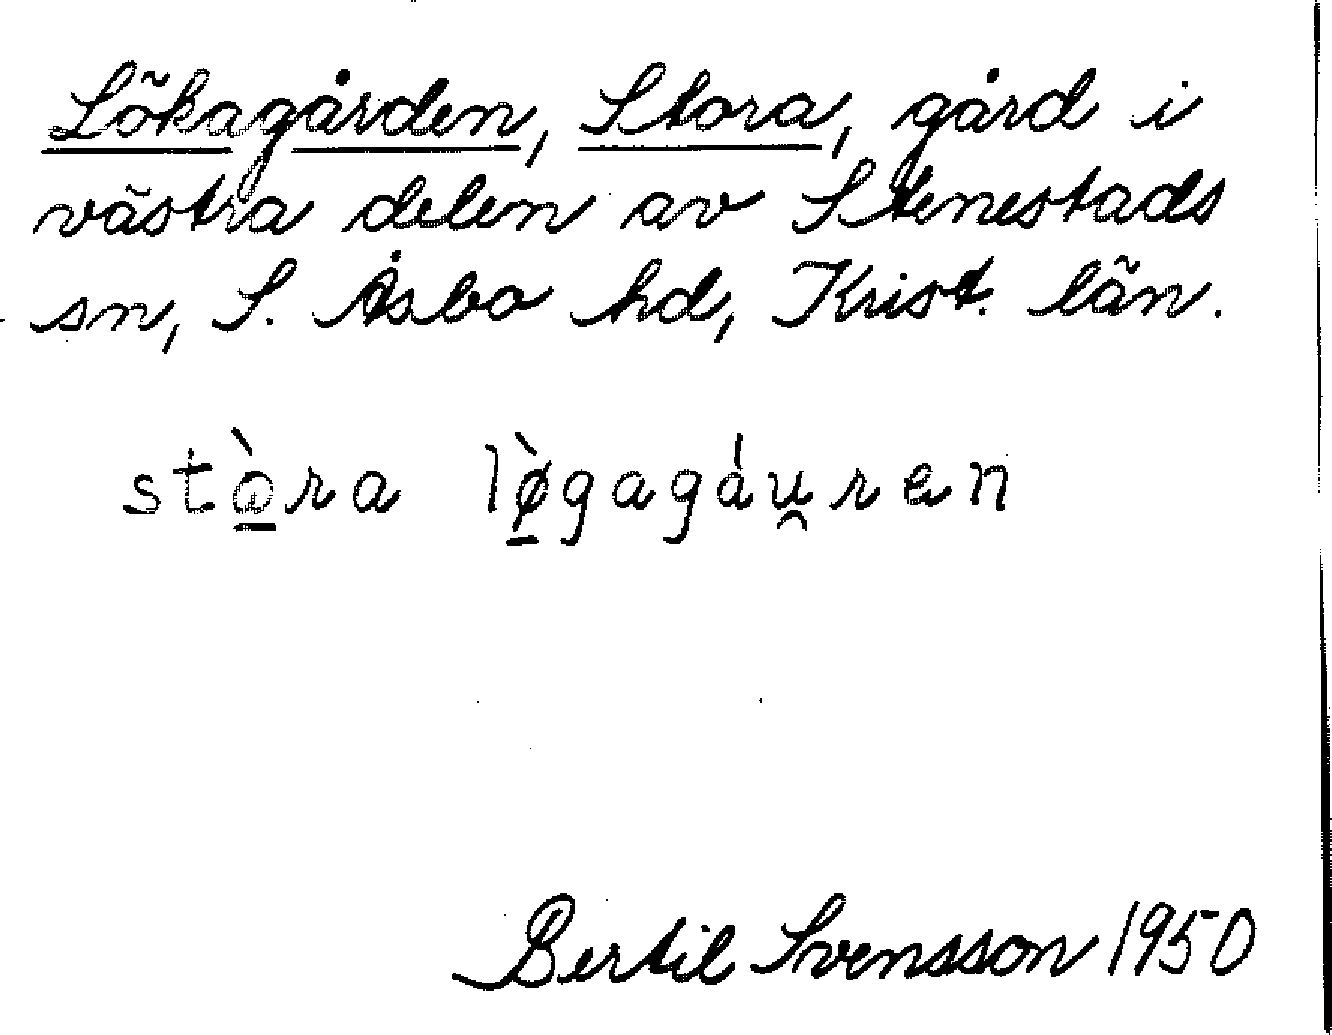 Lökagården, Stora, gård i
västra delen av Stenestads
sn, S. Åsbo hd, Krist. län.
stò̱ra lø̱̀gagáu̯ren
Bertil Svensson 1950